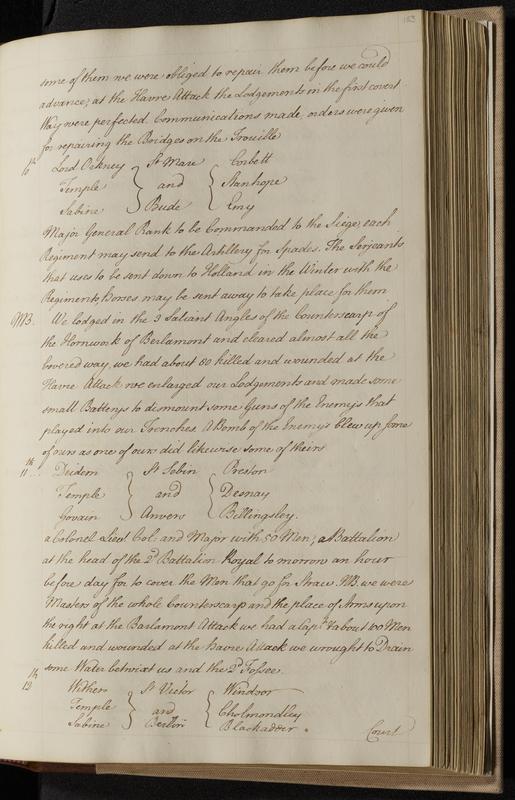 153
some of them we were obliged to repair them before we could
advance; at the Havre Attack the Lodgements in the first covert
Way were perfected Communications made, orders were given
for repairing the Bridges on the Trouille
10th Lord Orkney } St Mare { Corbett
Temple } and { Stanhope
Sabine } Bude { Emy
Major General Rank to be Commanded to the Siege, each
Regiment may send to the Artillery for Spades. The Serjeants
that uses to be sent down to Holland in the Winter with the
Regiments Horses may be sent away to take place for them
NB. We lodged in the 3 Saliant Angles of the Counterscarp of
the Hornwork of Berlamont and cleared almost all the
Covered way, we had about 80 killed and wounded at the
Havre Attack we enlarged our Lodgements and made some
small Batterys to dismount some Guns of the Enemy's that
played into our Trenches A Bomb of the Enemy's blew up some
of ours as one of ours did likewise some of theirs
11th Dedem } St Sebin { Preston
Temple } and { Desnay
Govain } Anvers { Billingsley.
a Colonel Lieut Col: and Major with 50 Men; a Battalion
at the head of the 2d Battalion Royal to morrow an hour
before day for to cover the Men that go for Straw. NB. we were
Masters of the whole Counterscarp and the place of Arms upon
the right at the Barlamont Attack we had a Capt & about 100 Men
killed and wounded at the havre Attack we wrought to Drain
some Water betwixt us and the 2d Fossee.
12th Withers } St Victor { Windsor
Temple } and { Cholmondley
Sabine } Berlin { Blackadder.
Court